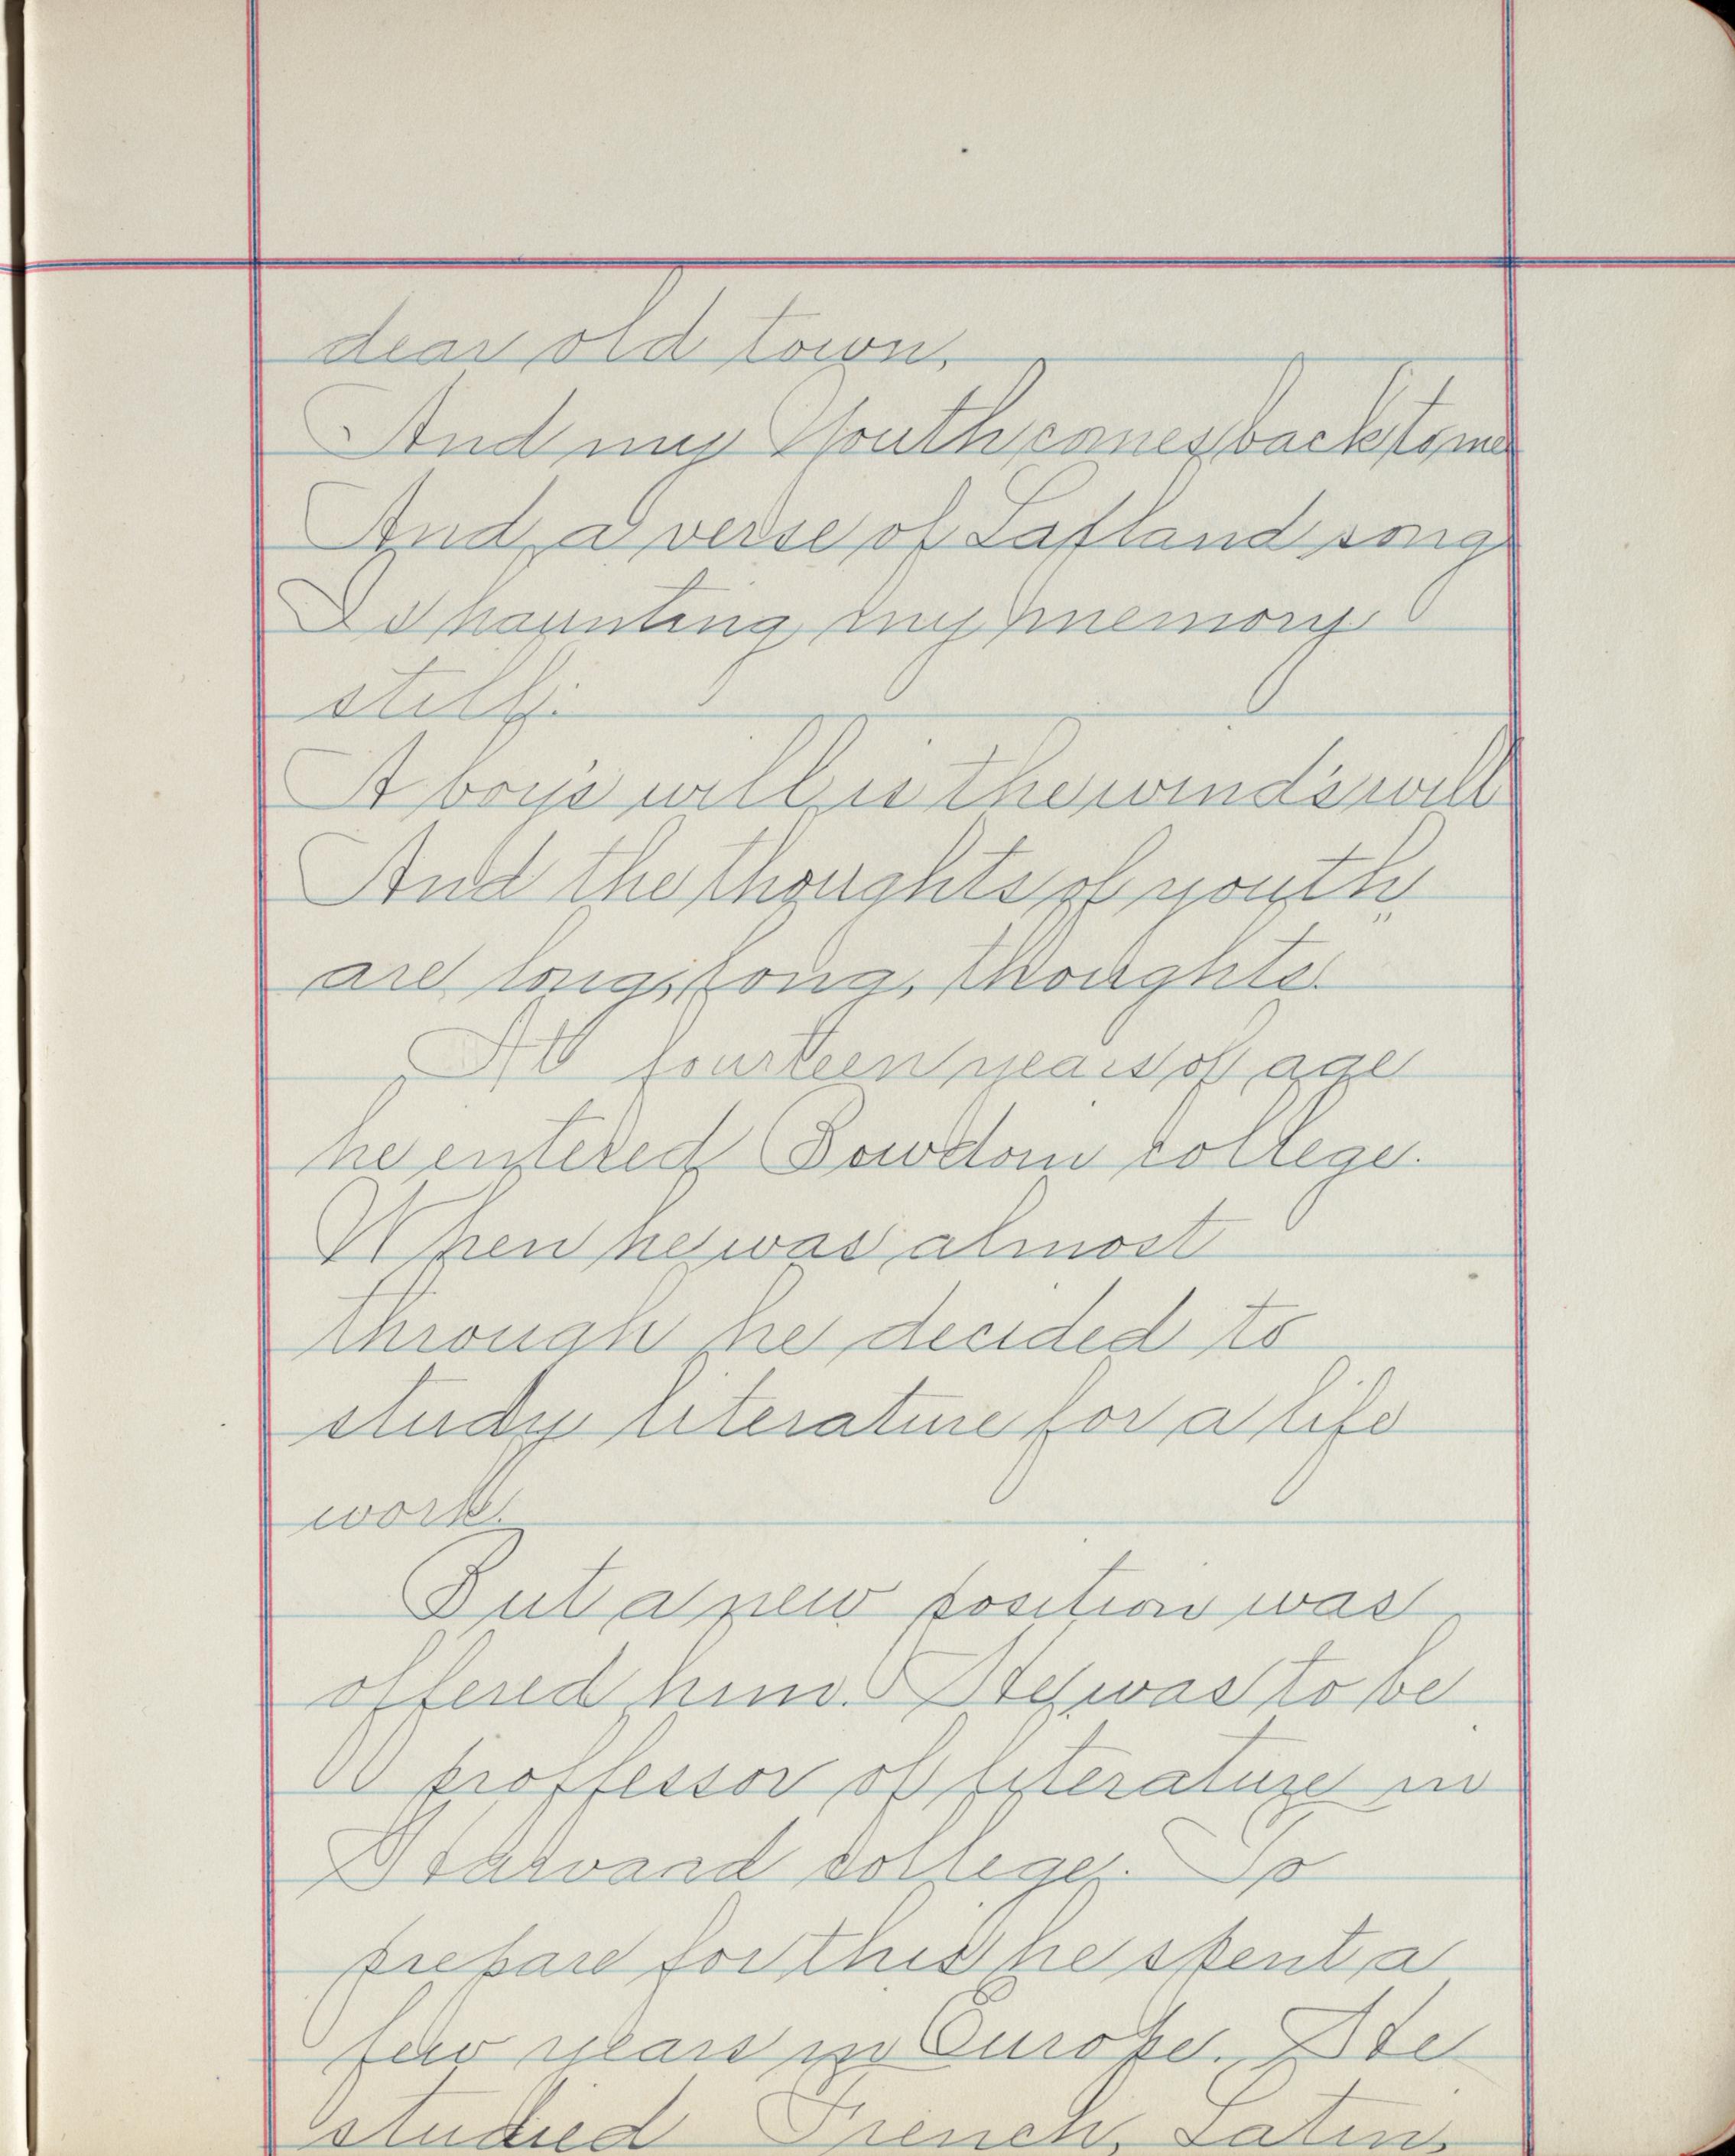 dear old town,
And my Youth comes back to me
And a verse of Lafland song
Is haunting my memory
still:
A boy's will is the wind's will
And the thoughts of youth
are long, long, thoughts."
At fourteen years of age
he entered Bowdoin college.
When he was almost
through he decided to
study literature for a life
work.
But a new position was
offered him. He was to be
proffessor of literature in
Harvard college. To
prepare for this he spent a
few years in Europe. He
studied French, Latin,